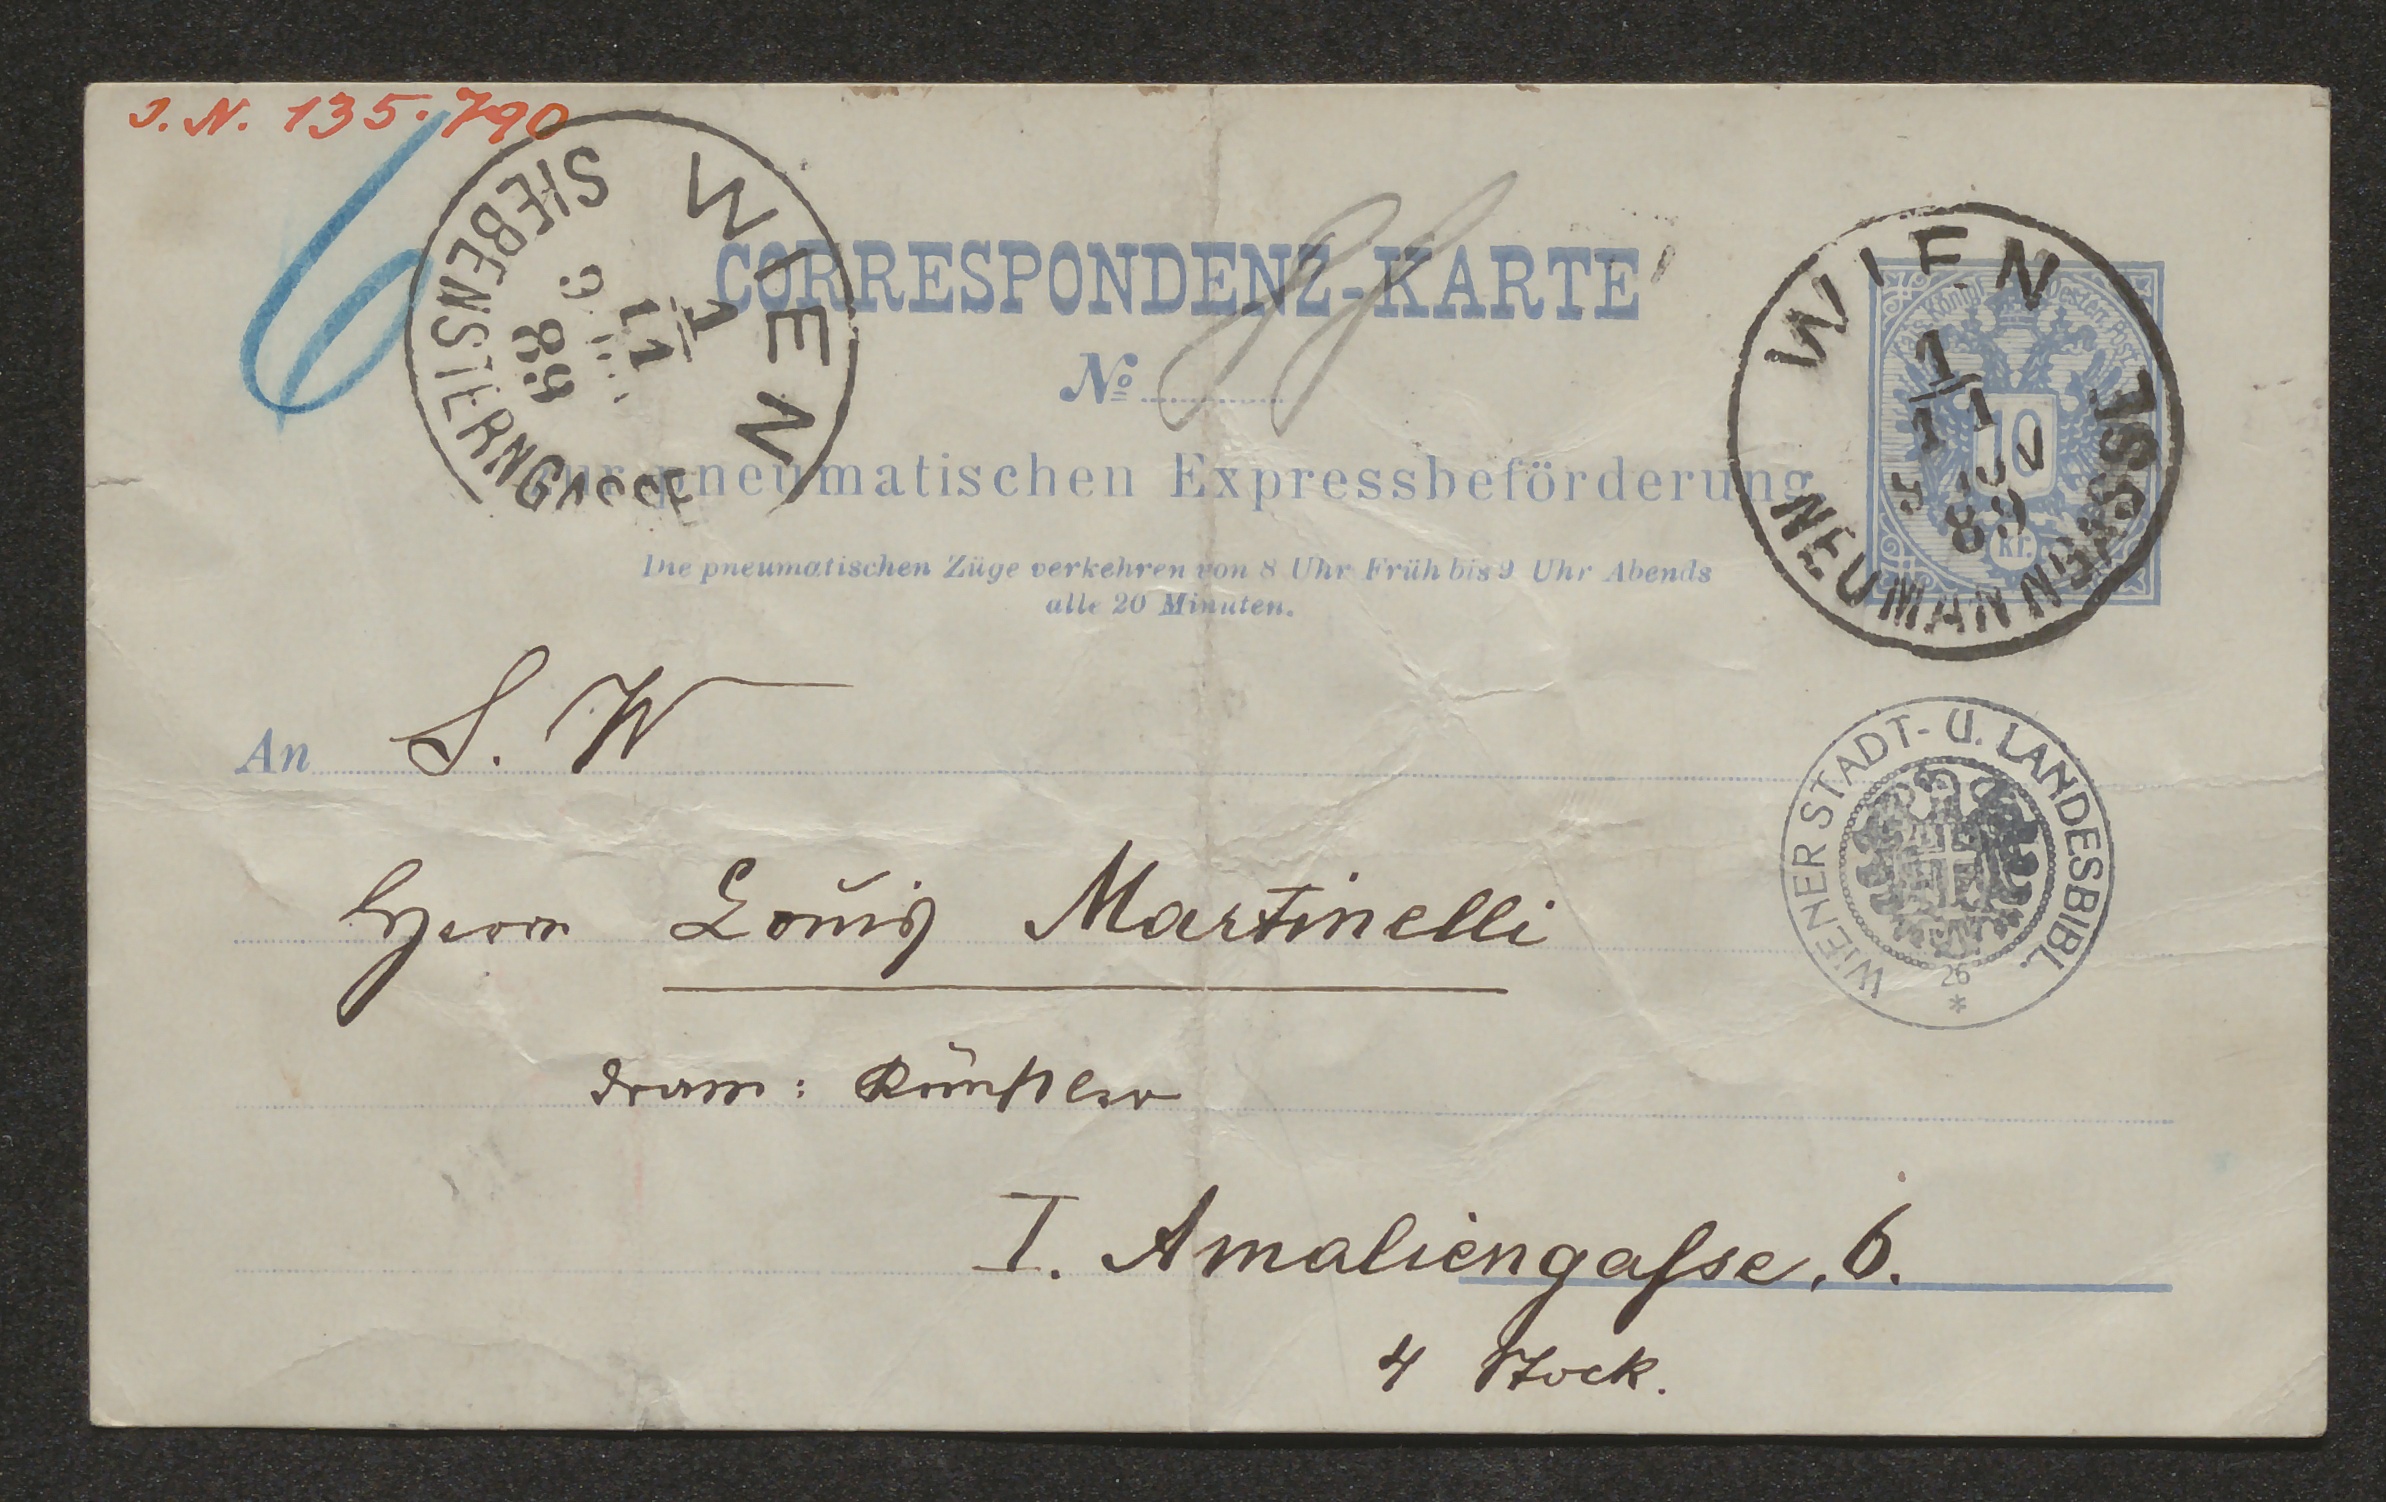 J. N. 135.790
6
WIEN
SIEBENSTERNGASSE
1/11
89
CORRESPONDENZ-KARTE
No
zur pneumatischen Expressbeförderung
Die pneumatischen Züge verkehren von 8 Uhr Früh bis 9 Uhr Abends
alle 20 Minuten.
WIEN
1/11
89
NEUMANNGASSE
10
kr.
An S. W
WIENER STADT- U. LANDESBIBL.
26
*
Herrn Louis Martinelli
dram: Künstler
I. Amaliengasse, 6.
4 Stock.